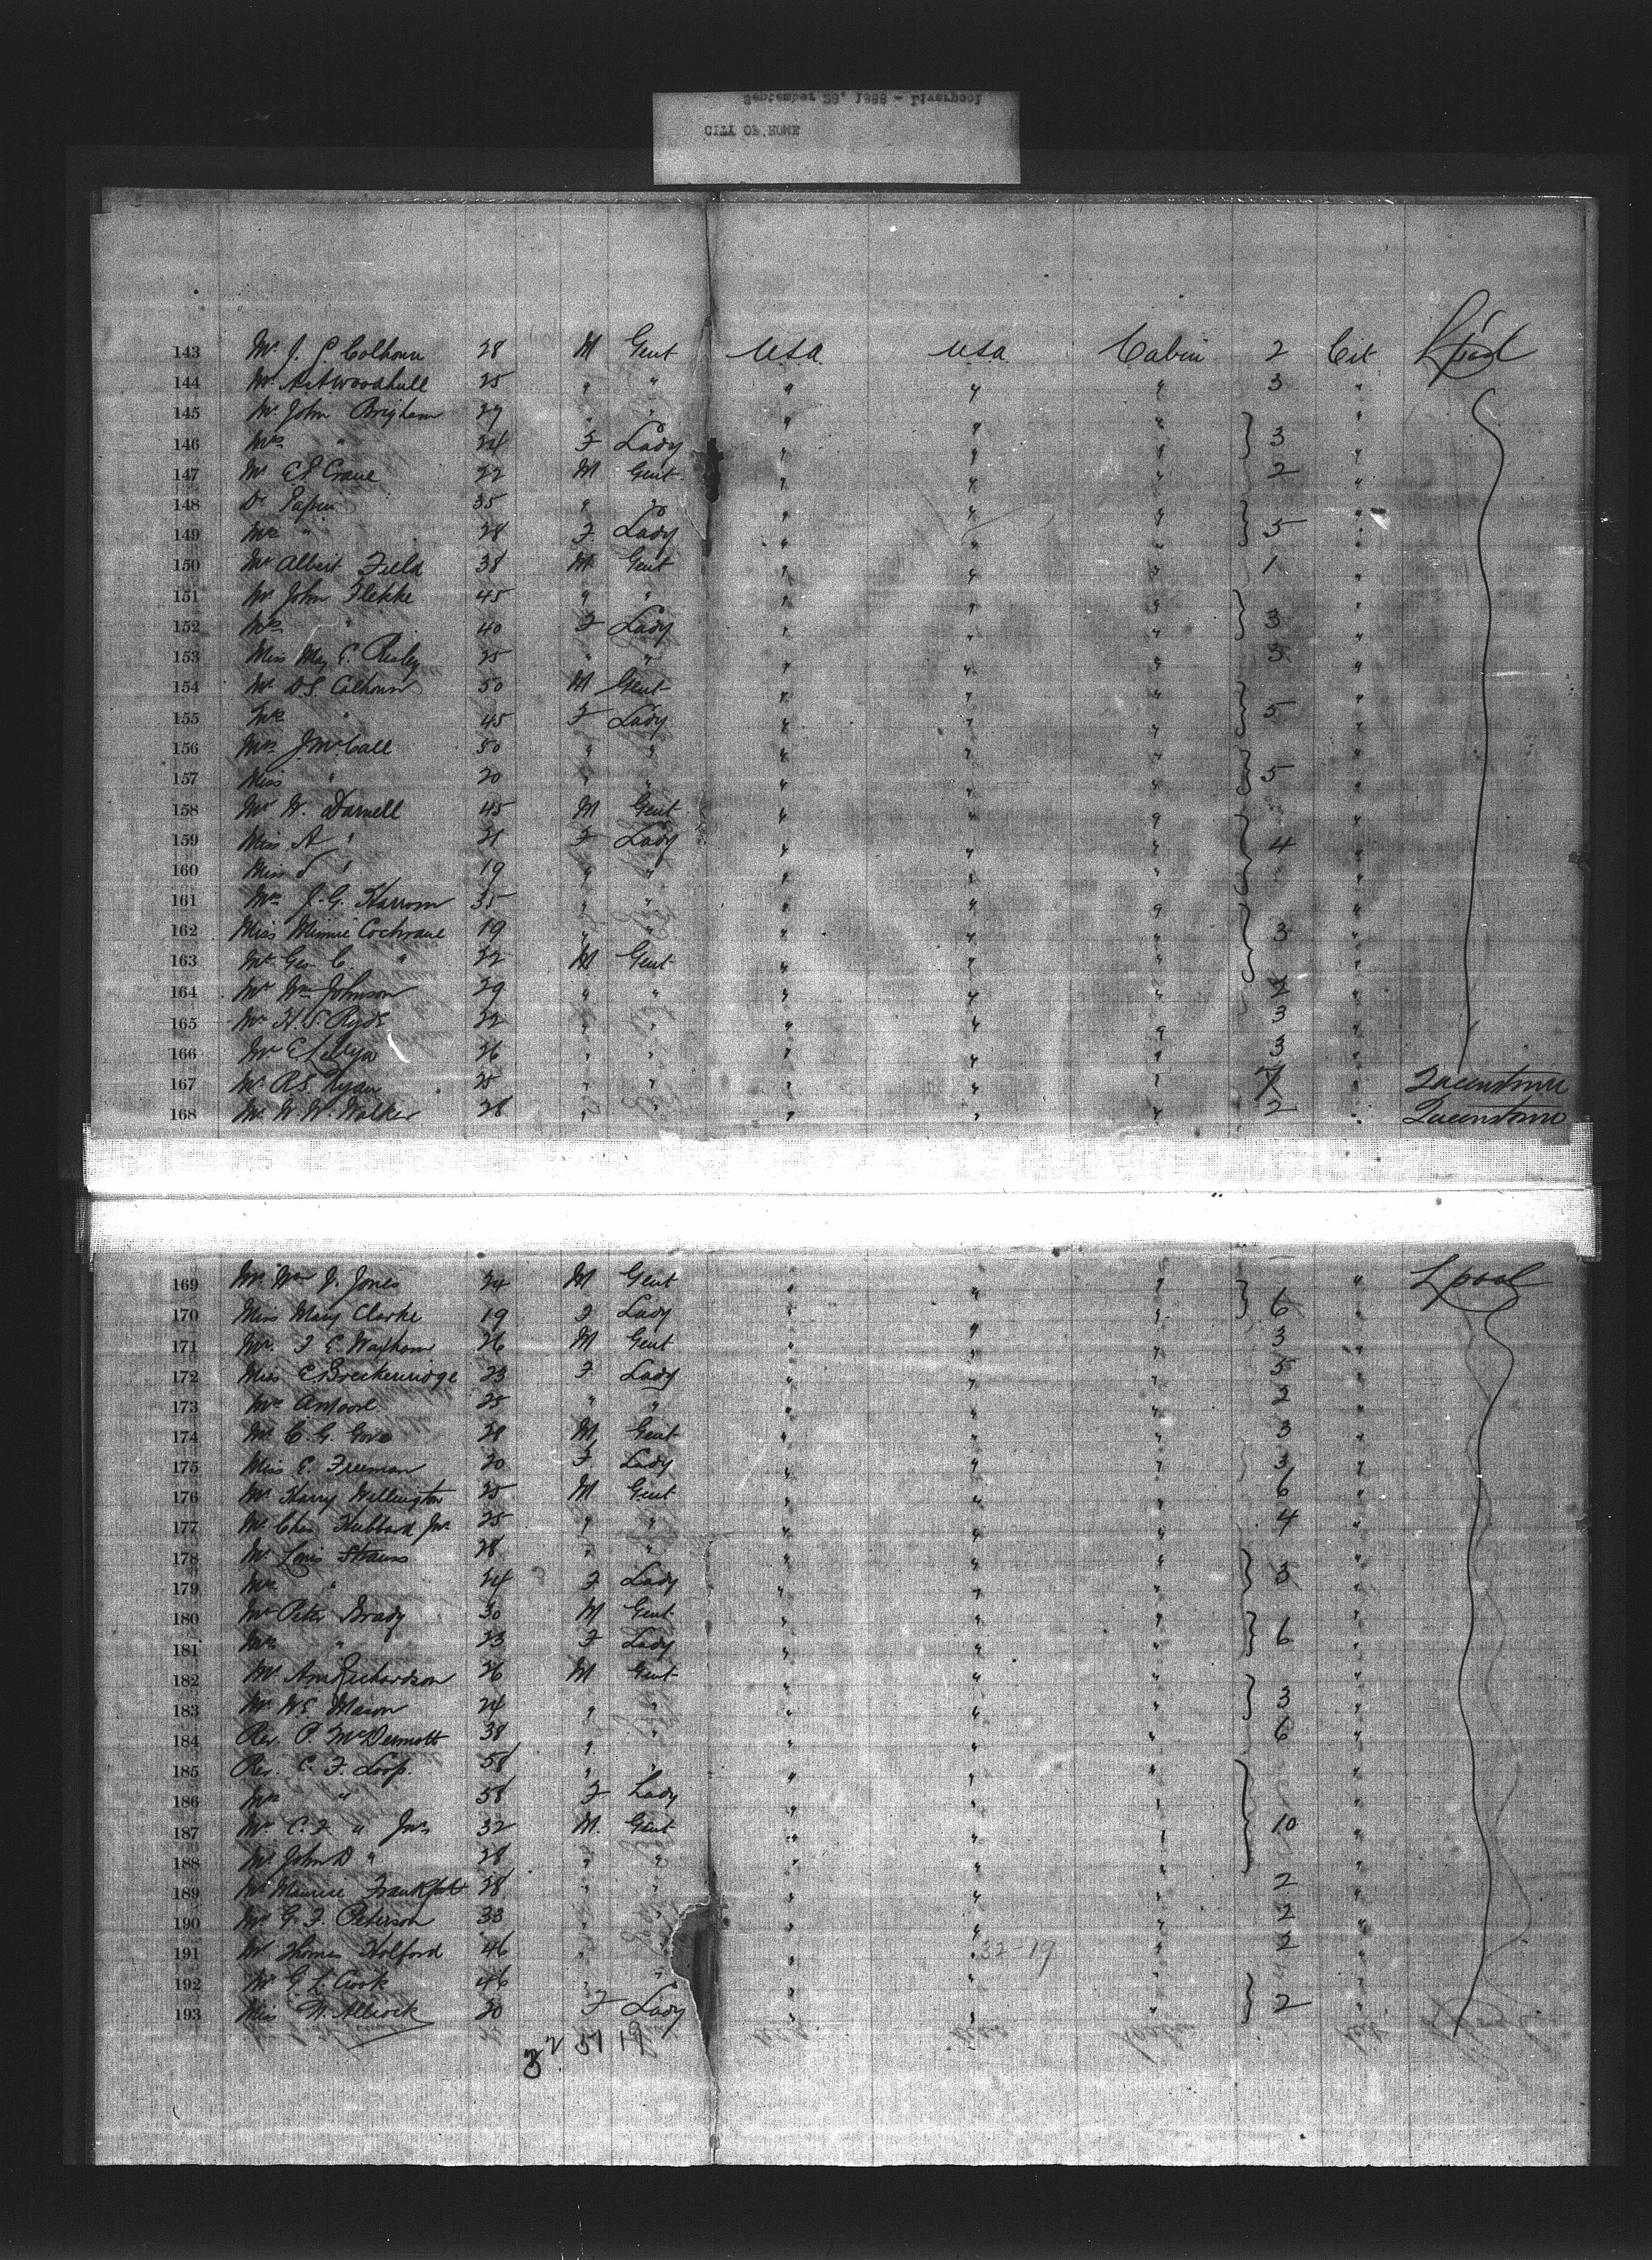 September 29, 1888 - Liverpool
CITY OF ROME
143 Mr J. C Colhoun 28 M Gent USA USA Cabin 2 Cit L'pool
144 Mr Woodhull 25 " " " " " 3 "
145 Mr John Brigham 29 " " " " " "
146 Mrs " 24 F Lady " " " } 3 "
147 Mr E.S. Crane 22 M Gent " " " 2 "
148 Dr 35 " " " " " "
149 Mrs " 28 F Lady " " " } 5 "
150 Mr Albert Field 38 M Gent " " " 1 "
151 Mr John Flekke 45 " " " " " "
152 Mrs " 40 F Lady " " " } 3 "
153 Miss May E. Risley 25 " " " " " 3 "
154 Mr D.S. Calhoun 50 M Gent " " " "
155 Mrs " 45 F Lady " " " } 5 "
156 Mrs J McCall 50 " " " " " "
157 Miss " 20 " " " " " } 5 "
158 Mr W. Darnell 45 M Gent " " " "
159 Miss A " 21 F Lady " " " } 4 "
160 Miss " 19 " " " " " "
161 Mrs J.G. Harrom 35 " " " " " "
162 Miss Minnie Cochrane 19 " " " " " } 3 "
163 Mr Geo. C. " 22 M Gent " " " "
164 Mr Wm Johnson 29 " " " " " 2 "
165 Mr H.S. Ryde 22 " " " " " 3 "
166 Mr E. 26 " " " " " 3 "
167 Mr R.S. Ryan 25 " " " " " 7 " Queenstown
168 Mr W. W. Walker 28 " " " " " 2 " Queenstown
169 Mr Wm J. Jones 24 M Gent " " " " L'pool
170 Miss Mary Clarke 19 F Lady " " " } 6 "
171 Mr. F E. Waxham 26 M Gent " " " 3 "
172 Miss C Breckenridge 23 F Lady " " " 5 "
173 Mrs A Moore 25 " " " " " 2 "
174 Mr C. G. Gove 28 M Gent " " " 3 "
175 Miss E. Freeman 20 F Lady " " " 3 "
176 Mr Harry Wellington 25 M Gent " " " 6 "
177 Mr Chas Hubbard Jnr 25 " " " " " 4 "
178 Mr Louis Strauss 28 " " " " " "
179 Mrs " 24 F Lady " " " } 3 "
180 Mr Peter Brady 30 M Gent " " " "
181 Mrs " 23 F Lady " " " } 6 "
182 Mr Richardson 26 M Gent " " " "
183 Mr W.E. Mason 24 " " " " " } 3 "
184 Rev. P. McDermott 38 " " " " " 6 "
185 Rev. C. F. Loop. 58 " " " " " "
186 Mrs " 58 F Lady " " " "
187 Mr C. F. " Jnr 32 M. Gent " " " } 10 "
188 Mr John D " 28 " " " " " "
189 Mr Maurice Frankfort 28 " " " " " 2 "
190 Mr G. F. Peterson 33 " " " " " 2 "
191 Mr Thomas Holford 46 " " " " 32-19 " 2 "
192 Mr G L. Cook 46 " " " " " "
193 Miss M. Allcock 20 F Lady " " " } 2 "
32 51 19